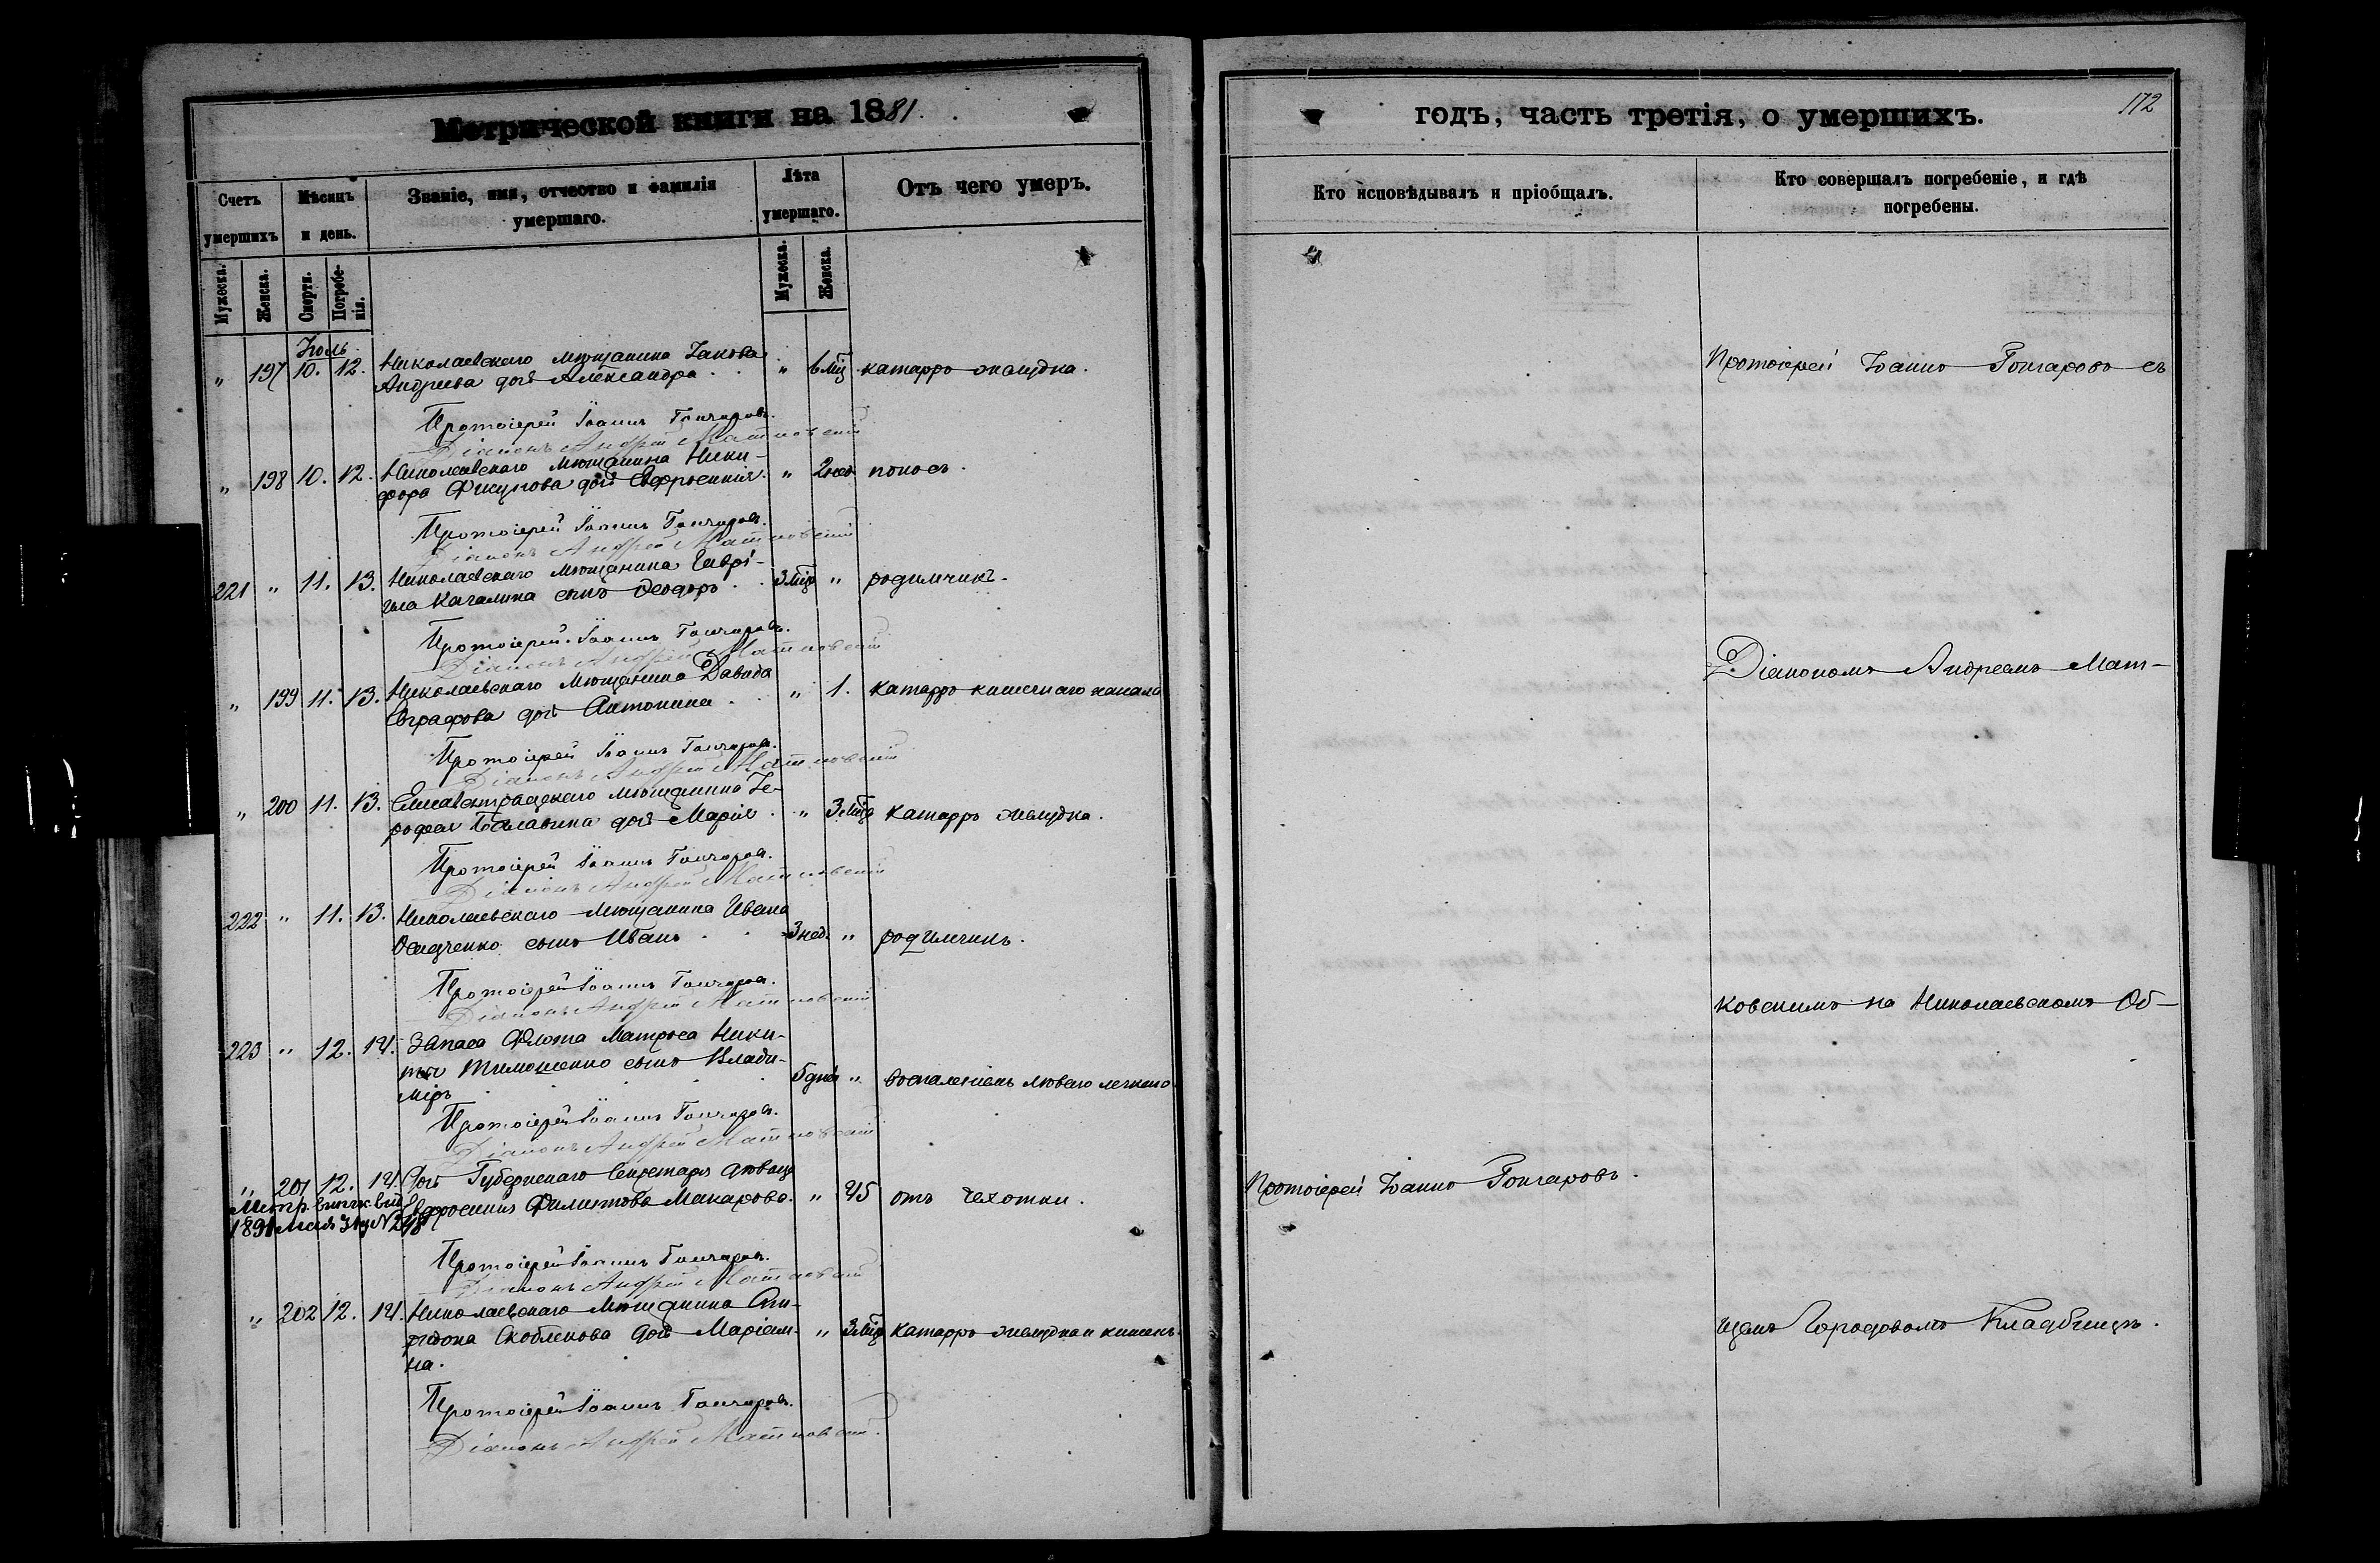 Метрической книги на 1881.
Счетъ умершихъ
Мѣсяцъ и день.
Званіе, имя, отчество и фамилія умершаго.
Лѣта умершаго.
Отъ чего умеръ.
Мужеска. Женска. Смерти. Погребенія. Мужеска. Женска.
Іюль
" 197 10. 12. Николаевскаго мѣщанина Іакова " 6 мѣц. катарръ желудка.
Андреева дочь Александра.
Протоіерей Іоаннъ Гончаровъ.
Діаконъ Андрей Матковскій
" 198 10. 12. Николаевскаго мѣщанина Ники- " 2 нед. поносъ.
фора Фикулова дочь Евфросинія.
Протоіерей Іоаннъ Гончаровъ.
Діаконъ Андрей Матковскій
221 " 11. 13. Николаевскаго мѣщанина Гаврі- 3 мѣц. " родимчикъ.
ила Качалина сынъ Ѳеодоръ.
Протоіерей Іоаннъ Гончаровъ.
Діаконъ Андрей Матковскій
" 199 11. 13. Николаевскаго мѣщанина Давида " 1. катарръ кишечнаго канала
Евграфова дочь Антонина.
Протоіерей Іоаннъ Гончаровъ.
Діаконъ Андрей Матковскій
" 200 11. 13. Елисаветградскаго мѣщанина Іе- " 3 мѣц. катарръ желудка.
рофея Балабина дочь Марія.
Протоіерей Іоаннъ Гончаровъ.
Діаконъ Андрей Матковскій
222 " 11. 13. Николаевскаго мѣщанина Ивана
Осадченко сынъ Иванъ. 3 нед. " родимчикъ.
Протоіерей Іоаннъ Гончаровъ.
Діаконъ Андрей Матковскій
223 " 12. 14. Запаса Флота Матроса Ники-
ты Тимошенко сынъ Влади- 5 дней " воспаленіемъ лѣваго легкаго
міръ
Протоіерей Іоаннъ Гончаровъ.
Діаконъ Андрей Матковскій
" 201 12. 14. Дочь Губернскаго Секретаря дѣвица
Евфросинія Филиппова Макарова. " 45 отъ чехотки.
Метр. выпись выд.
1891
Протоіерей Іоаннъ Гончаровъ.
Діаконъ Андрей Матковскій
" 202 12. 14. Николаевскаго мѣщанина Спи-
ридона Скобленова дочь Маріам- " 3 мѣц. катарръ желудка и кишекъ.
на.
Протоіерей Іоаннъ Гончаровъ.
Діаконъ Андрей Матковскій.
годъ, часть третія, о умершихъ.
172
Кто исповѣдывалъ и пріобщалъ.
Кто совершалъ погребеніе, и гдѣ погребены.
Протоіерей Іоаннъ Гончаровъ съ
Діакономъ Андреемъ Мат-
ковскимъ на Николаевскомъ Об-
Протоіерей Іоаннъ Гончаровъ.
щемъ Городовомъ Кладбищѣ.